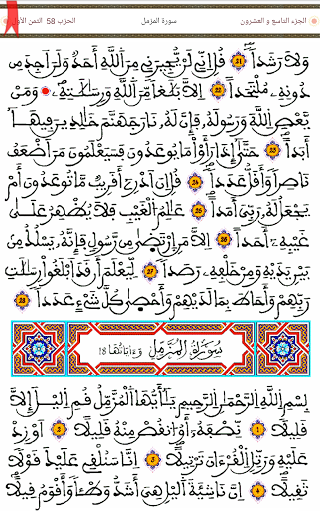 الجزء التاسع و العشرون سورة المزمل الحزب 58 الثمن الأول
وَلَا رَشَدًا 21 قُلْ إِنِّي لَنْ يُّجِيرَنِي مِنَ اَللَّهِ أَحَدٌ وَلَنْ أَجِدَ مِن
دُونِهِ مُلْتَحَدًا 22 إِلَّا بَلَٰغًا مِّنَ اَللَّهِ وَرِسَٰلَٰتِهِ وَمَنْ
يَّعْصِ اِللَّهَ وَرَسُولَهُ فَإِنَّ لَهُ نَارَ جَهَنَّمَ خَٰلِدِينَ فِيهَا
أَبَدًا 23 حَتَّىٰ إِذَا رَأَوْا مَا يُوعَدُونَ فَسَيَعْلَمُونَ مَنَ اَضْعَفُ
نَاصِرًا وَأَقَلُّ عَدَدًا 24 قُلِ اِنَ اَدْرِي أَقَرِيبٌ مَّا تُوعَدُونَ أَمْ
يَجْعَلُ لَهُ رَبِّيَ أَمَدًا 25 عَٰلِمُ الْغَيْبِ فَلَا يُظْهِرُ عَلَىٰ
غَيْبِهِ أَحَدًا 26 إِلَّا مَنِ اِرْتَضَىٰ مِن رَّسُولٍ فَإِنَّهُ يَسْلُكُ مِنۢ
بَيْنِ يَدَيْهِ وَمِنْ خَلْفِهِ رَصَدًا 27 لِّيَعْلَمَ أَن قَدَ اَبْلَغُوا رِسَٰلَٰتِ
رَبِّهِمْ وَأَحَاطَ بِمَا لَدَيْهِمْ وَأَحْصَىٰ كُلَّ شَيْءٍ عَدَدًا 28
سُورَةُ الْمُزَّمِّلِ وَءَايَاتُهَا 18
بِسْمِ اِللَّهِ اِلرَّحْمَٰنِ اِلرَّحِيمِ يَٰأَيُّهَا اَلْمُزَّمِّلُ قُمِ اِلَّيْلَ إِلَّا
قَلِيلًا 1 نِّصْفَهُ أَوُ اُنقُصْ مِنْهُ قَلِيلًا 2 اَوْ زِدْ
عَلَيْهِ وَرَتِّلِ اِلْقُرْءَانَ تَرْتِيلًا 3 اِنَّا سَنُلْقِي عَلَيْكَ قَوْلًا
ثَقِيلًا 4 اِنَّ نَاشِئَةَ اَلَّيْلِ هِيَ أَشَدُّ وَطْـًٔا وَأَقْوَمُ قِيلًا